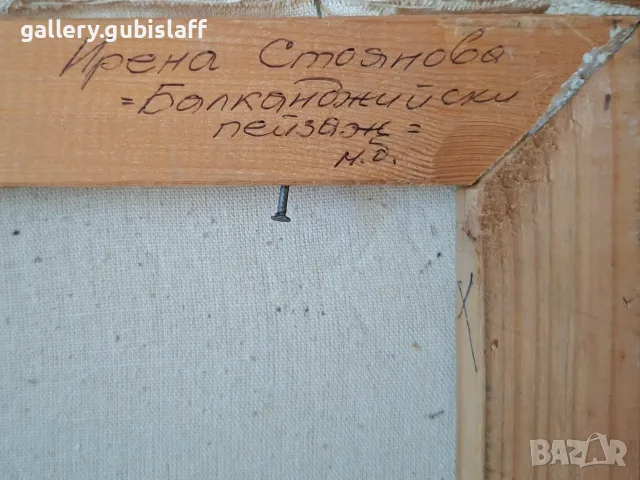 gallery.gubislaff
Ирена Стоянова
=Балканджийски
пейзаж=
м.б.
BAZAR